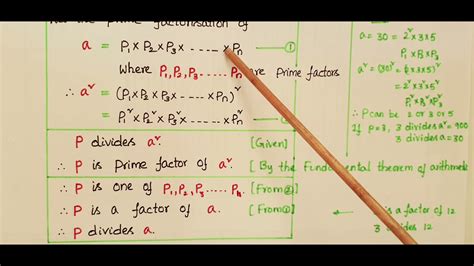 has the prime factorisation of
a = P₁×P₂×P₃× ..... ×Pₙ — ①
Where P₁,P₂,P₃.....Pₙ are prime factors
∴ a² = (P₁×P₂×P₃× .... ×Pₙ)²
= P₁²×P₂²×P₃²×.....×Pₙ² — ②
P divides a². [Given]
∴ P is prime factor of a². [By the Fundamental theorem of arithmetic
∴ P is one of P₁,P₂,P₃.....Pₙ. [From②]
∴ P is a factor of a. [From①]
∴ P divides a.
a = 30 = 2×3×5
P₁×P₂×P₃
a² = (30)² = (2×3×5)²
= 2²×3²×5²
P₁²×P₂²×P₃²
∴ P can be 2 or 3 or 5
If P=3, 3 divides a²=900
3 divides a=30
is a factor of 12
3 divides 12